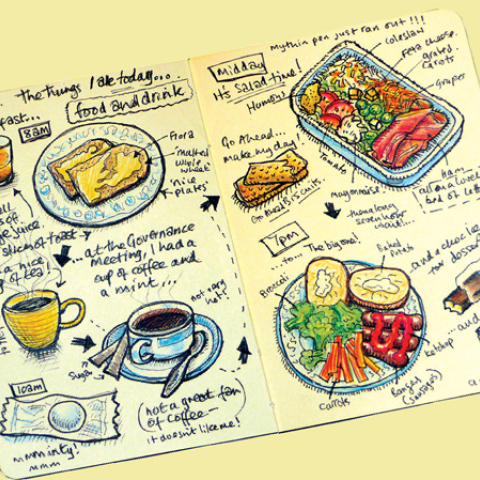 the things I ate today...
food and drink
fast...
8am
Flora
"malted
whole
wheat"
"nice
plates"
all
s of
juice
slices of toast
a nice
of tea!
...at the Governance
meeting, I had a
cup of coffee and
a mint...
not very
hot!
Sugar
10am
mmminty!
mmm
(not a great fan
of coffee—
it doesn't like me!)
my thin pen just ran out!!!
Midday
It's Salad time!
Humous
coleslaw
Feta cheese
grated
carrots
Grapes
Go Ahead...
make my day!
Go Ahead Biscuits
Tomato
mayonnaise
ham
all on a
bed of
then a long
7pm
...to... The big one!
Baked
Potato
Broccoli
Carrots
ketchup
(sausages)
and a choc
for
...and